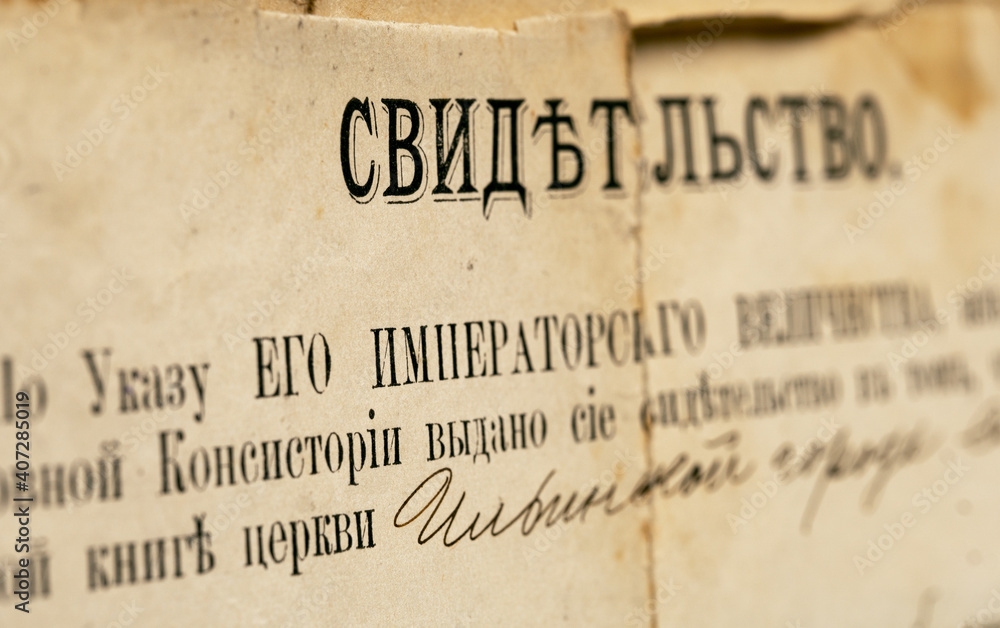 СВИДѢТЕЛЬСТВО.
По Указу ЕГО ИМПЕРАТОРСКГО ВЕЛИЧЕСТВА
Консисторіи выдано сіе свидѣтельство въ томъ,
книгѣ церкви Ильинской города
Adobe Stock | #407285019